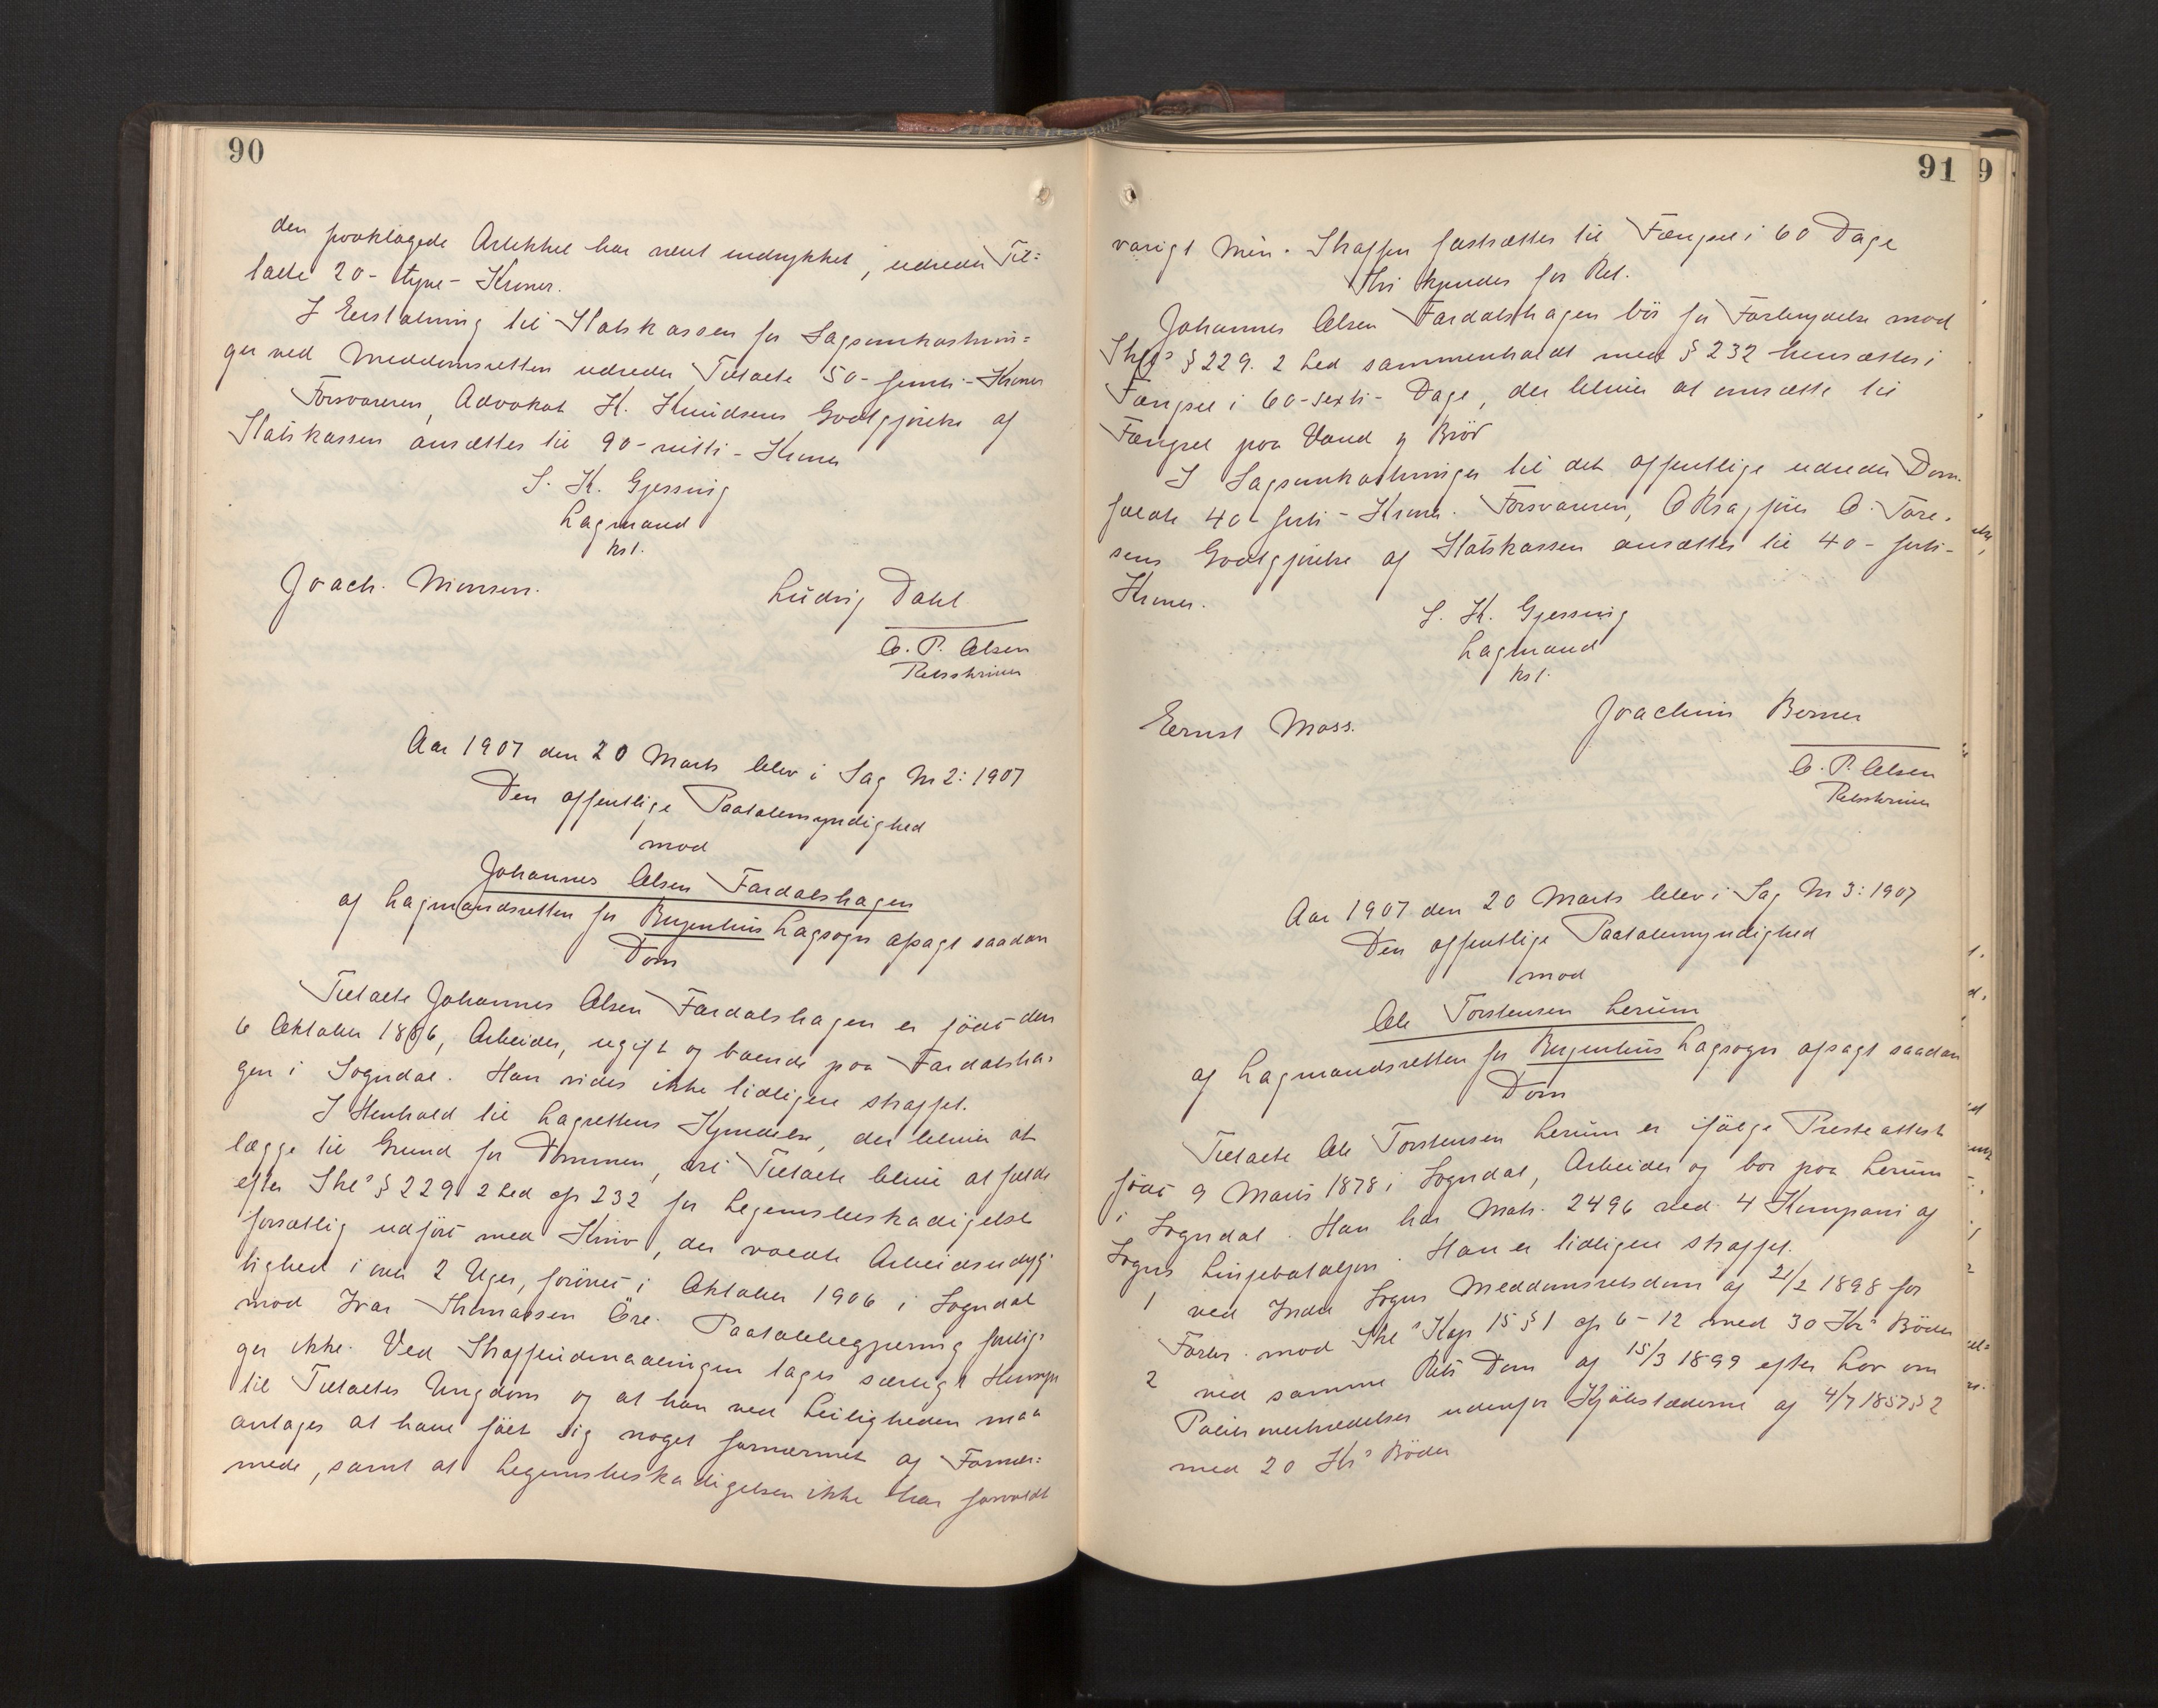 90
den paaklagede Artikkel har været indrykket, udreder Til=
talte 20 - tyve - Kroner.
I Erstatning til Statskassen for Sagsomkostnin=
ger ved Meddomsretten udreder Tiltalte 50 - femti - Kroner
Forsvareren, Advokat K. Knudsens Godtgjørelse af
Statskassen ansættes til 90 - nitti - Kroner
S. K. Gjessing
Lagmand
kst.
Joach. Monsen.
Ludvig Dahl
O. P. Olsen
Retsskriver
Aar 1907 den 20 Marts blev i Sag No 2: 1907
Den offentlige Paatalemyndighed
mod
Johannes Olsen Fardalshagen
af Lagmandsretten for Bergenhus Lagsogn afsagt saadan
Dom
Tiltalte Johannes Olsen Fardalshagen er født den
6 Oktober 1886, Arbeider, ugift og boende paa Fardalsha=
gen i Sogndal. Han vides ikke tidligere straffet.
I Henhold til Lagrettens Kjendelse, der bliver at
lægge til Grund for Dommen, vil Tiltalte blive at fælde
efter Strl's § 229 2 Led cfr 232 for Legemsbeskadigelse
forsætlig udført med Kniv, der voldte Arbeidsudyg=
tighed i over 2 Uger, forøvet i Oktober 1906 i Sogndal
mod Ivar Thomassen Øre. Paatalebegjæring forelig=
ger ikke. Ved Straffeudmaalingen tages særligt Hensyn
til Tiltaltes Ungdom og at han ved Leiligheden maa
antages at have følt sig noget fornærmet af Fornær=
mede, samt at Legemsbeskadigelsen ikke har forvoldt
91
varigt Mén. Straffen fastsættes til Fængsel i 60 Dage
Thi kjendes for Ret.
Johannes Olsen Fardalshagen bør for Forbrydelse mod
Strl's § 229. 2 Led sammenholdt med § 232 hensættes i
Fængsel i 60 - sexti - Dage, der bliver at omsætte til
Fængsel paa Vand og Brød
I Sagsomkostninger til det offentlige udreder Dom=
fældte 40 - firti - Kroner. Forsvareren, O Rsagfører O. Tore=
sens Godtgjørelse af Statskassen ansættes til 40 - firti -
Kroner.
S. K. Gjessing
Lagmand
kst.
Ernst Moss.
Joachim Berner
O. P. Olsen
Retsskriver
Aar 1907 den 20 Marts blev i Sag No 3: 1907
Den offentlige Paatalemyndighed
mod
Ole Torstensen Lerum
af Lagmandsretten for Bergenhus Lagsogn afsagt saadan
Dom
Tiltalte Ole Torstensen Lerum er ifølge Presteattest
født 9 Marts 1878 i Sogndal, Arbeider og bor paa Lerum
i Sogndal. Han har Matr. 2496 ved 4 Kompani af
Sogns Linjebataljon. Han er tidligere straffet.
1 ved Indre Sogns Meddomsretsdom af 21/2 1898 for
Forbr. mod Strl's Kap 15 § 1 cfr 6-12 med 30 Kr's Bøder
2 ved samme Rets Dom af 15/3 1899 efter Lov om
Politiovertrædelser udenfor Kjøbstæderne af 4/7 1857 § 2
med 20 Kr's Bøder